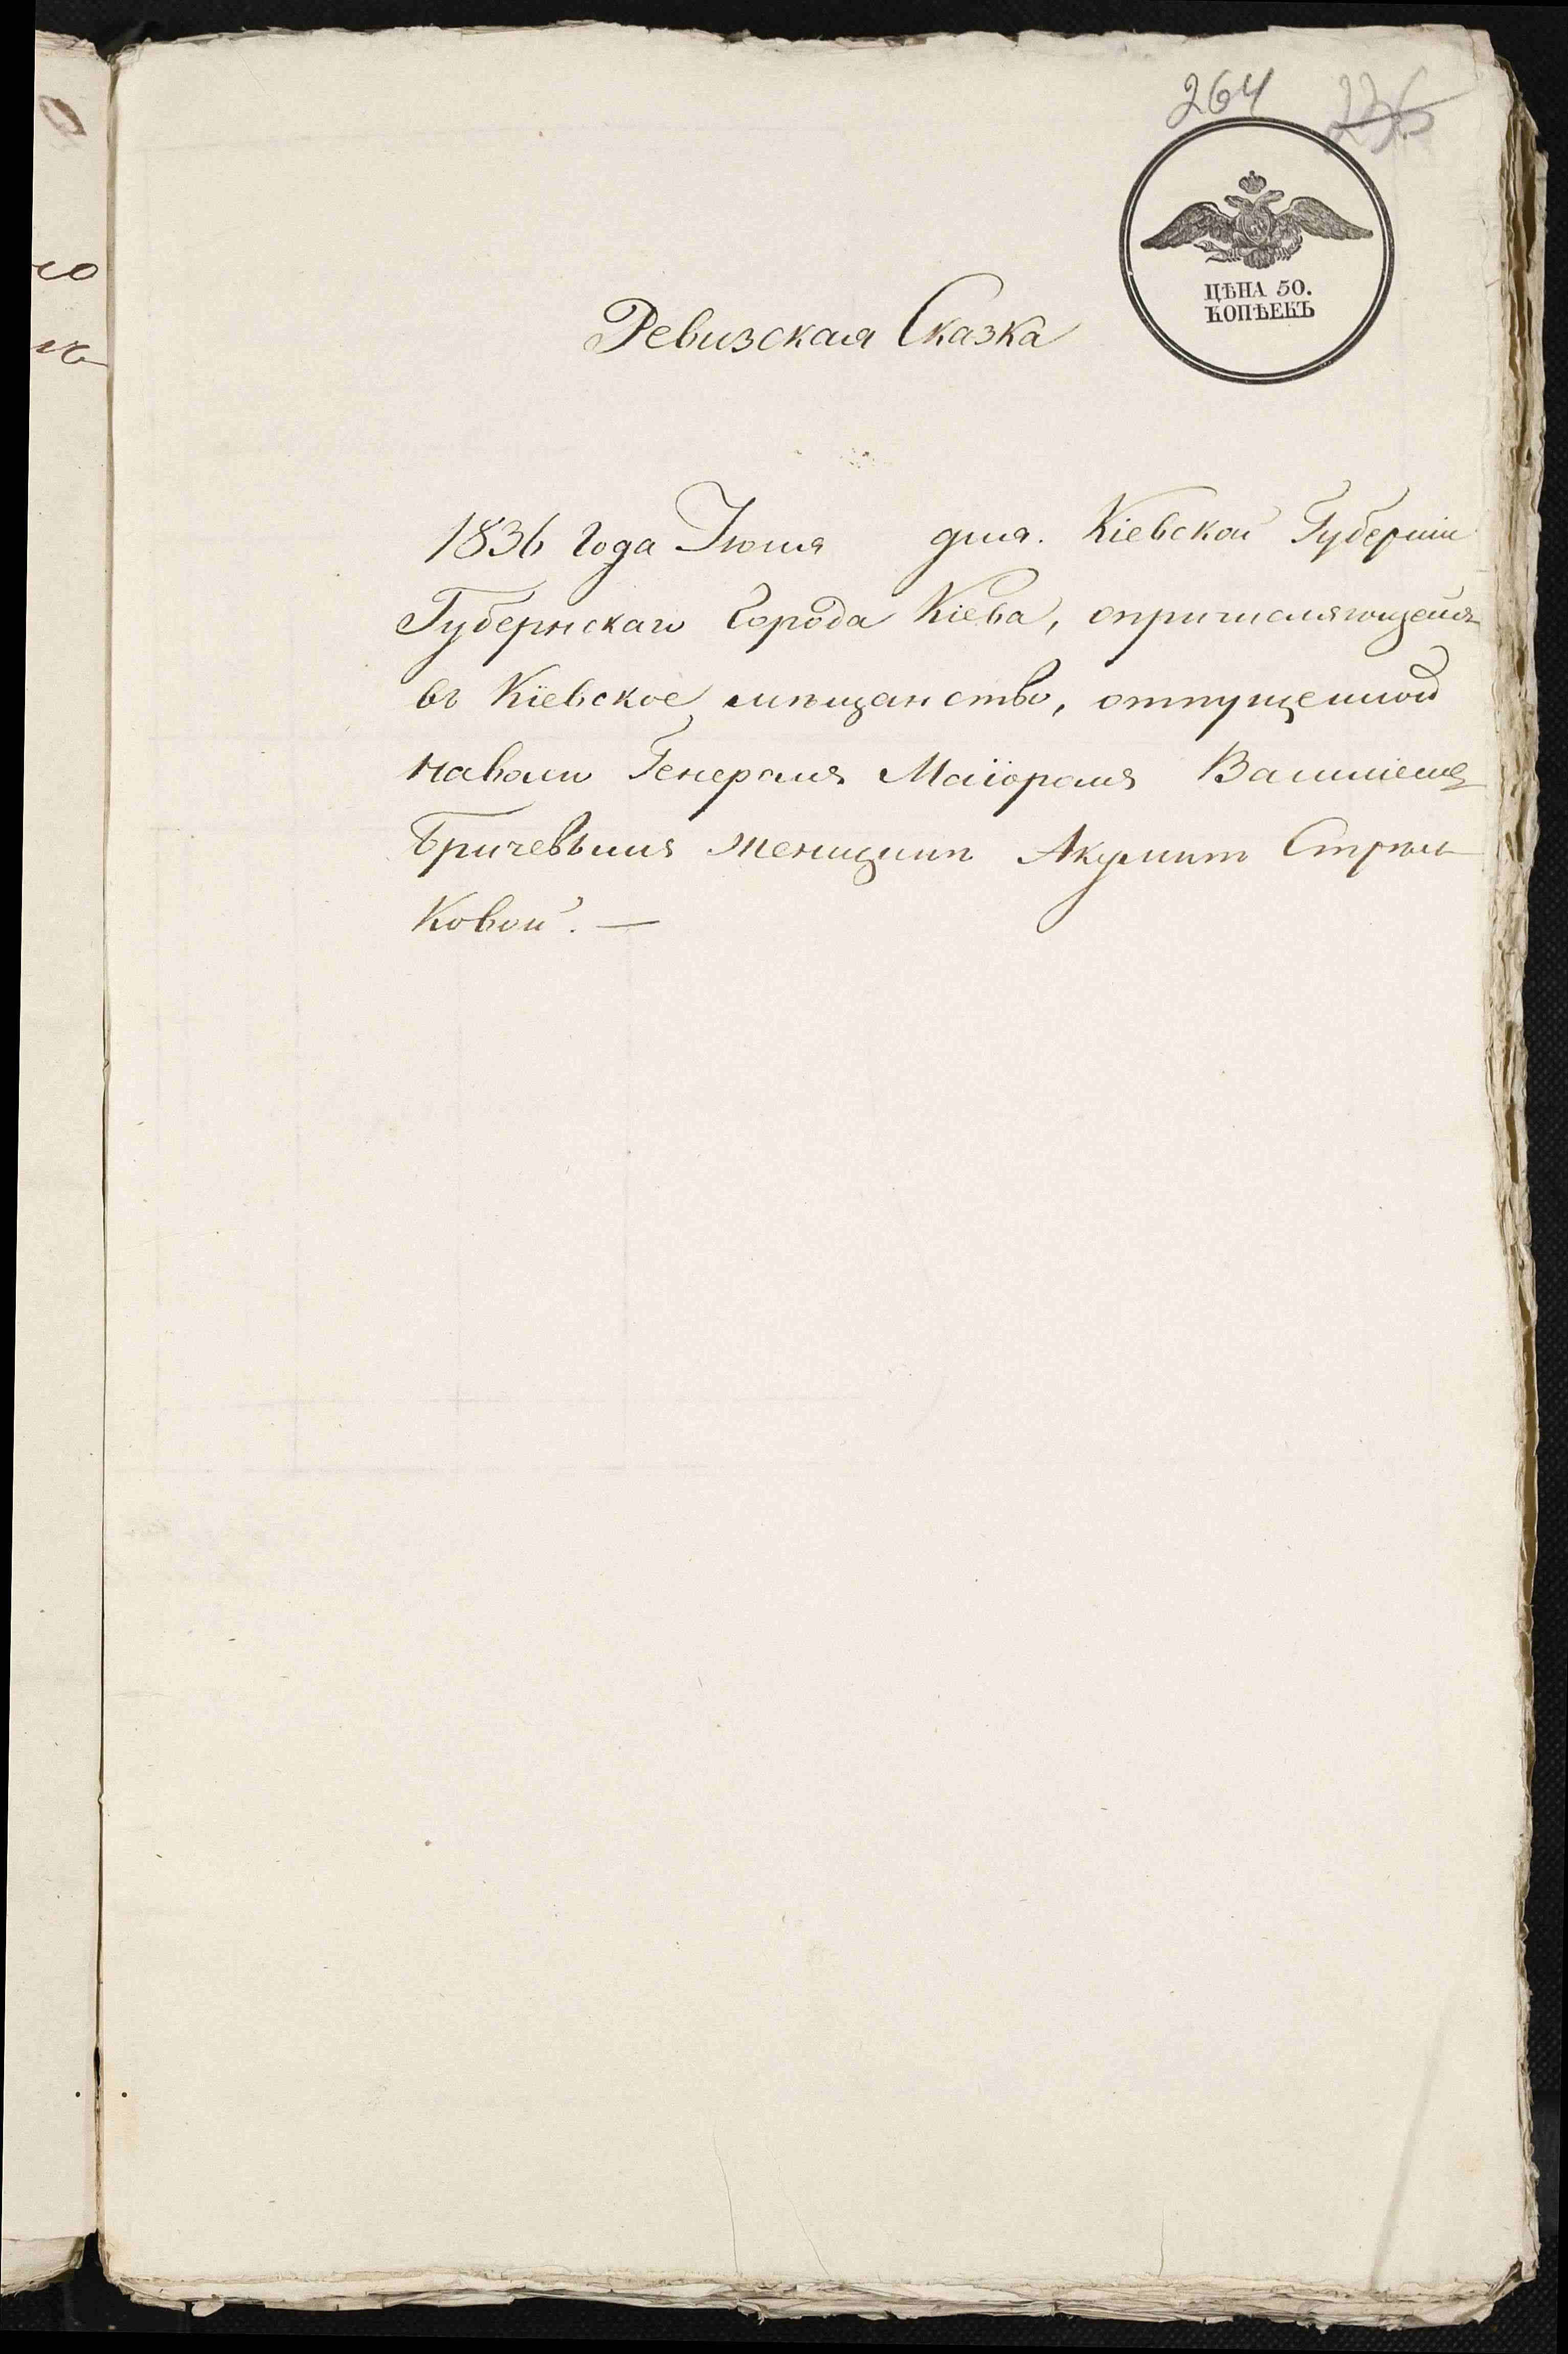 264 236
ЦѢНА 50.
КОПѢЕКЪ
Ревизская Сказка
1836 года Іюня дня. Кіевской Губерніи
Губернскаго Города Кіева, опричисляющейся
въ Кіевское мѣщанство, отпущенной
наволю Генералъ Маіоромъ
женщинѣ Акулинѣ Стрѣль
ковой. —